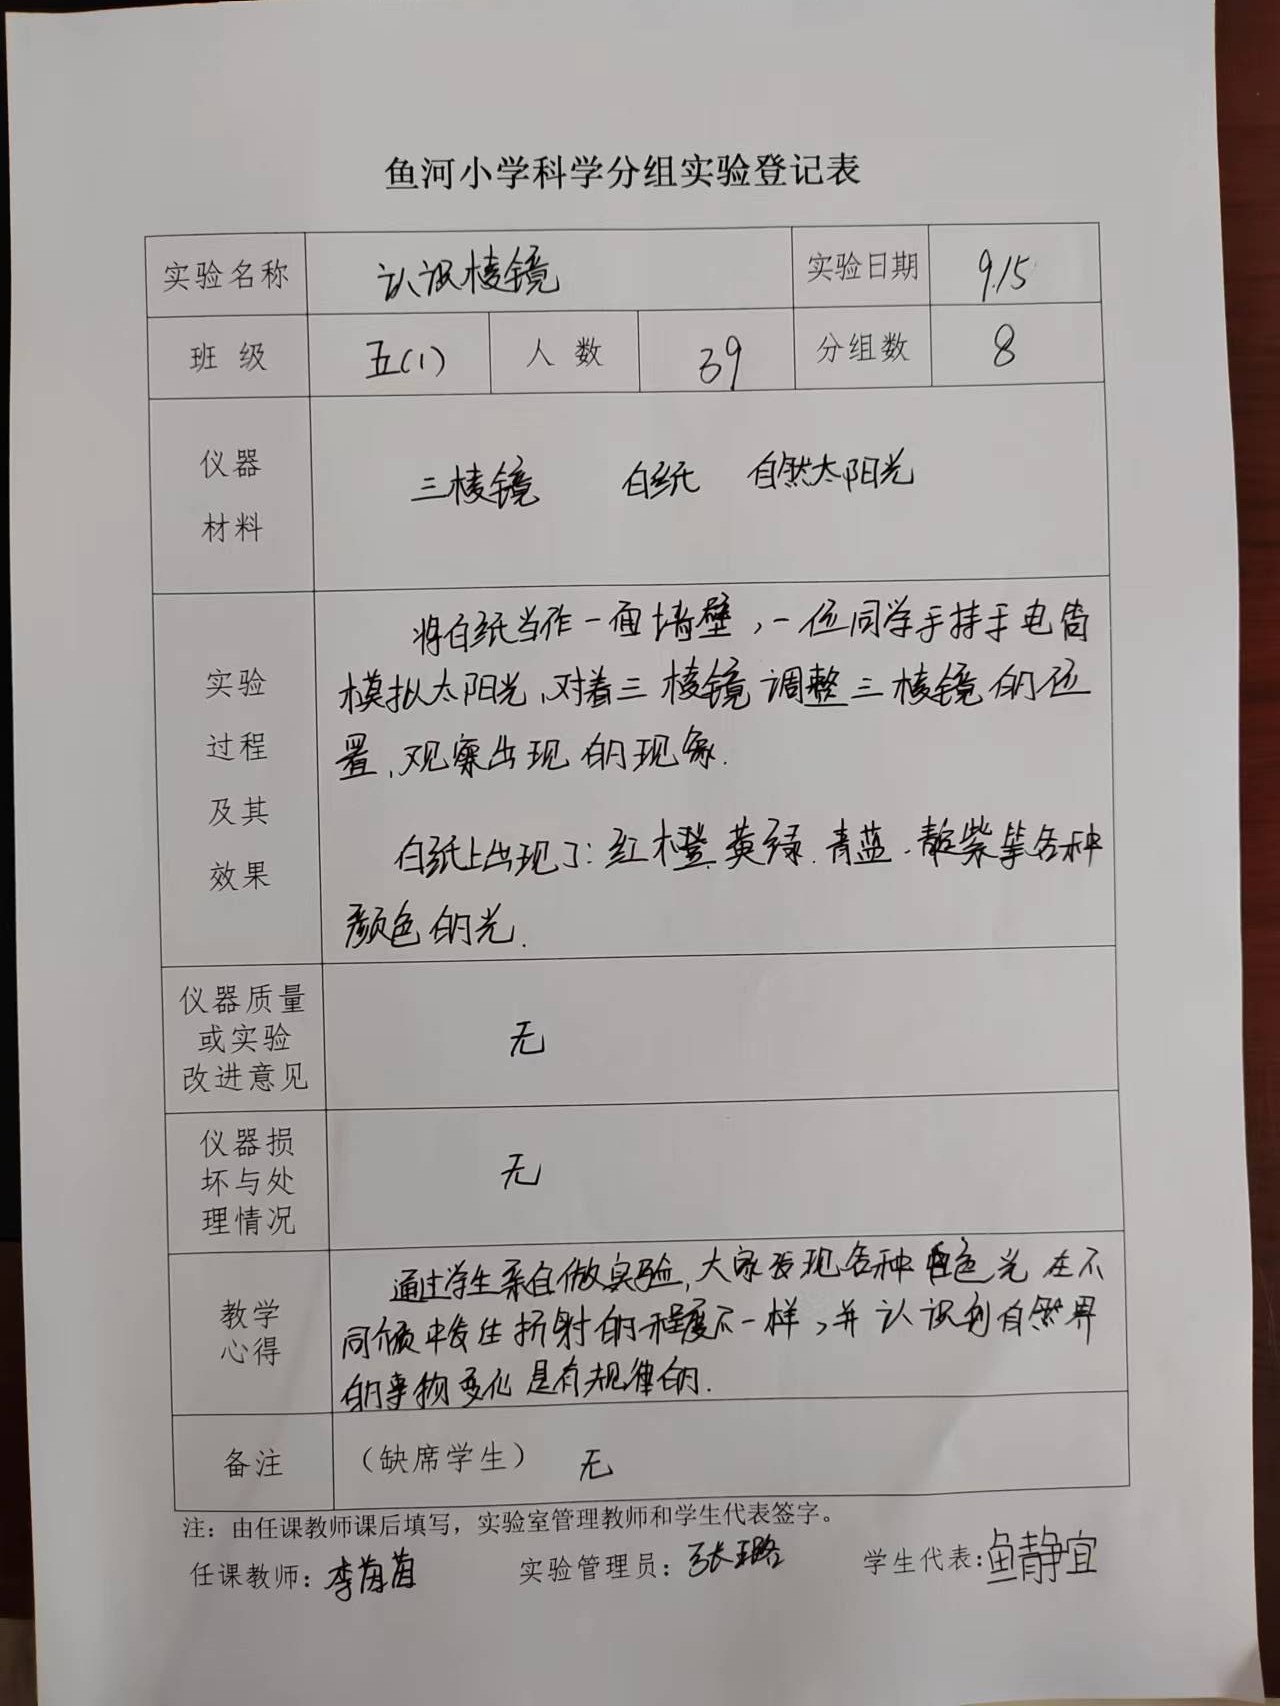 鱼河小学科学分组实验登记表
实验名称 认识棱镜 实验日期 9.15
班 级 五(1) 人 数 39 分组数 8
仪器
材料
三棱镜 白纸 自然太阳光
实验
过程
及其
效果
将白纸当作一面墙壁,一位同学手持手电筒
模拟太阳光,对着三棱镜调整三棱镜的位
置,观察出现的现象.
白纸上出现了:红橙.黄绿.青蓝.靛紫等各种
颜色的光.
仪器质量
或实验
改进意见
无
仪器损
坏与处
理情况
无
教学
心得
通过学生亲自做实验,大家发现各种色光在不
同 中发生折射的程度不一样,并认识到自然界
的事物变化是有规律的.
备注 (缺席学生) 无
注:由任课教师课后填写,实验室管理教师和学生代表签字。
任课教师:李 实验管理员:张璐 学生代表:鱼静宜